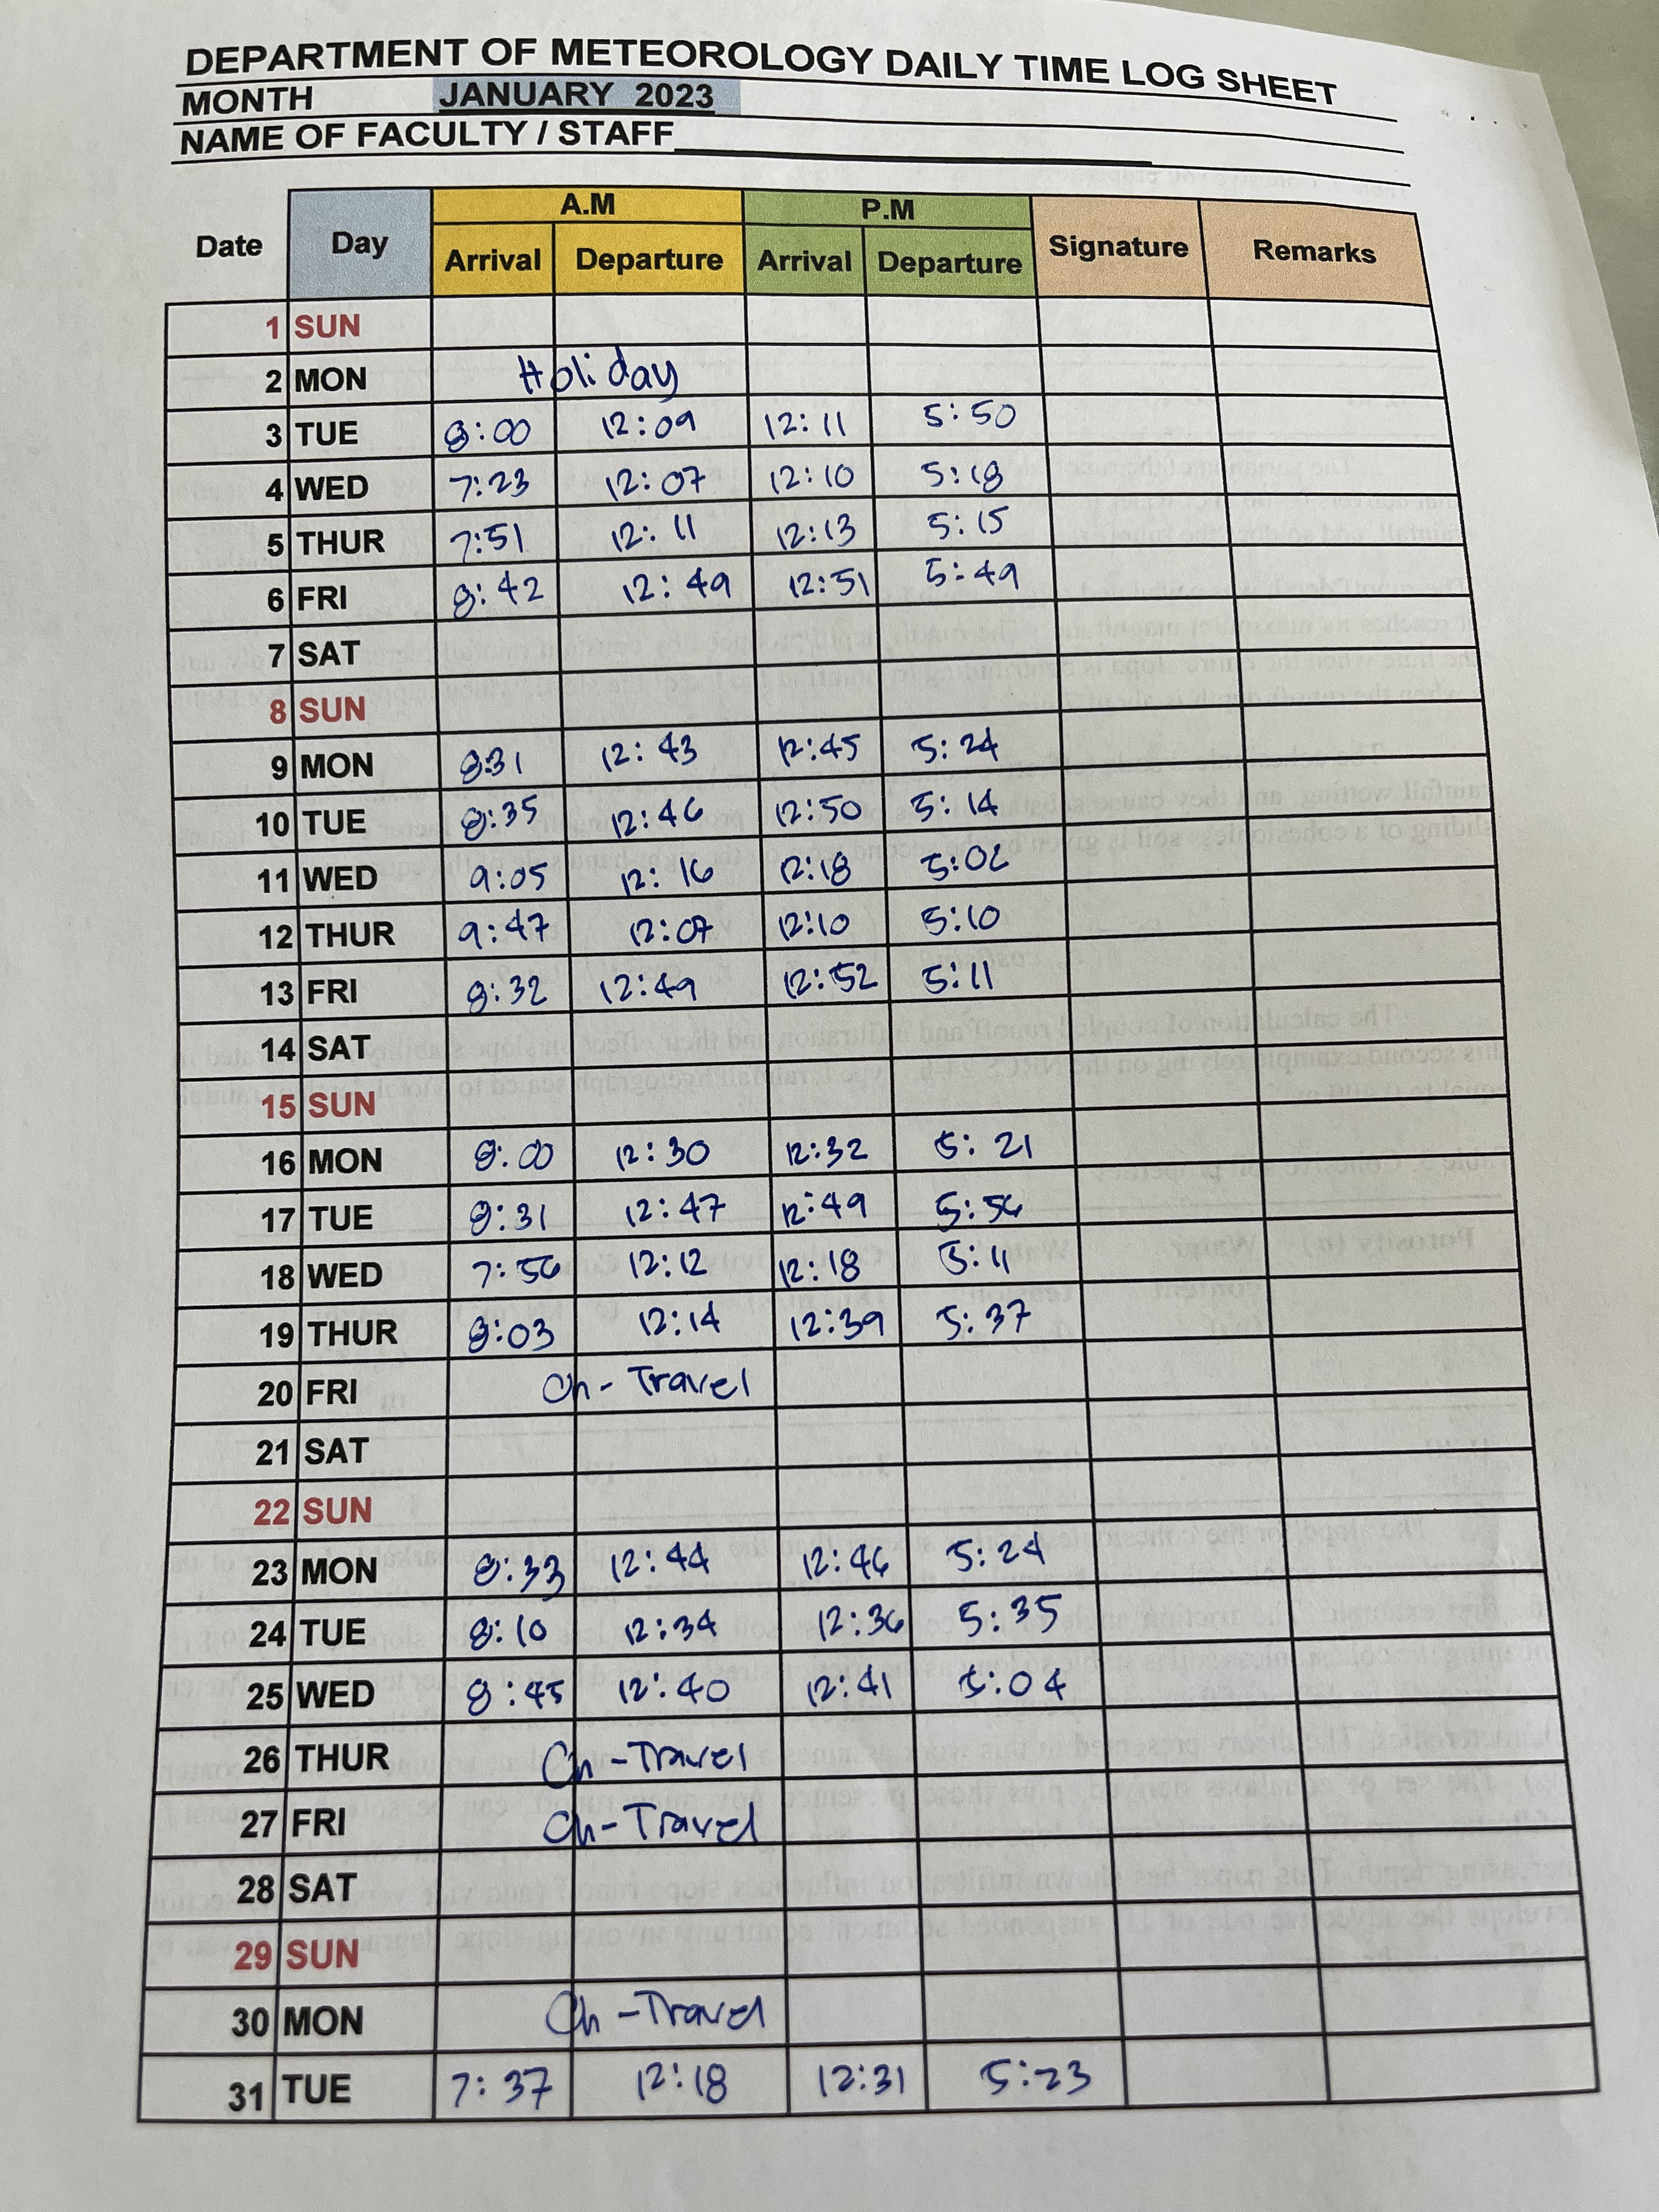 DEPARTMENT OF METEOROLOGY DAILY TIME LOG SHEET
MONTH JANUARY 2023
NAME OF FACULTY / STAFF
A.M P.M
Date Day Arrival Departure Arrival Departure Signature Remarks
1 SUN
2 MON Holiday
3 TUE 8:00 12:09 12:11 5:50
4 WED 7:23 12:07 12:10 5:18
5 THUR 7:51 12:11 12:13 5:15
6 FRI 8:42 12:49 12:51 5:49
7 SAT
8 SUN
9 MON 8:31 12:43 12:45 5:24
10 TUE 8:35 12:46 12:50 5:14
11 WED 9:05 12:16 12:18 5:06
12 THUR 9:47 12:07 12:10 5:10
13 FRI 8:32 12:49 12:52 5:11
14 SAT
15 SUN
16 MON 8:00 12:30 12:32 5:21
17 TUE 8:31 12:47 12:49 5:56
18 WED 7:56 12:12 12:18 5:11
19 THUR 8:03 12:14 12:39 5:37
20 FRI On-Travel
21 SAT
22 SUN
23 MON 8:33 12:44 12:46 5:24
24 TUE 8:10 12:34 12:36 5:35
25 WED 8:45 12:40 12:41 5:04
26 THUR On-Travel
27 FRI On-Travel
28 SAT
29 SUN
30 MON On-Travel
31 TUE 7:37 12:18 12:31 5:23